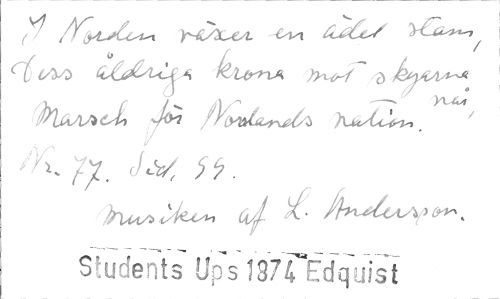 I Norden växer en ädel stam,
Dess åldriga krona mot skyarna
når,
Marsch för Norlands nation.
Nr. 77. Sid. 99.
Musiken af L. Andersson.
Students Ups 1874 Edquist